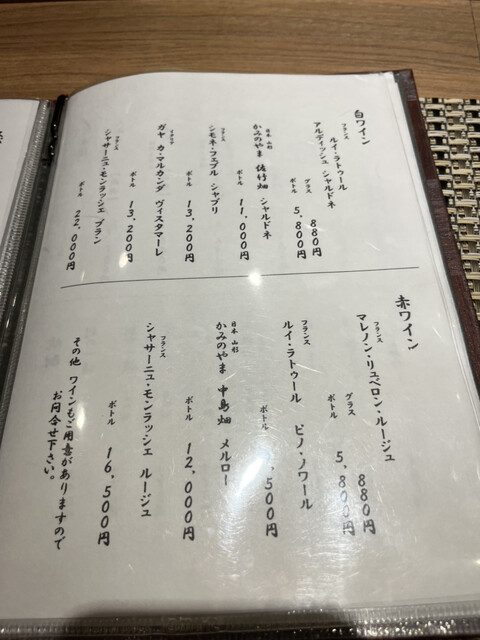 白ワイン
フランス
ルイ・ラトゥール
アルディッシュ シャルドネ
グラス 880円
ボトル 5,800円
日本 山形
かみのやま 佐竹畑 シャルドネ
ボトル 11,000円
フランス
シモネ・フェブル シャブリ
ボトル 13,200円
イタリア
ガヤ カ・マルカンダ ヴィスタマーレ
ボトル 13,200円
フランス
シャサーニュ・モンラッシェ ブラン
ボトル 22,000円
赤ワイン
フランス
マレノン・リュベロン・ルージュ
グラス 880円
ボトル 5,800円
フランス
ルイ・ラトゥール ピノ・ノワール
ボトル ,500円
日本 山形
かみのやま 中島畑 メルロー
ボトル 12,000円
フランス
シャサーニュ・モンラッシェ ルージュ
ボトル 16,500円
その他 ワインもご用意がありますので
お問合せ下さい。